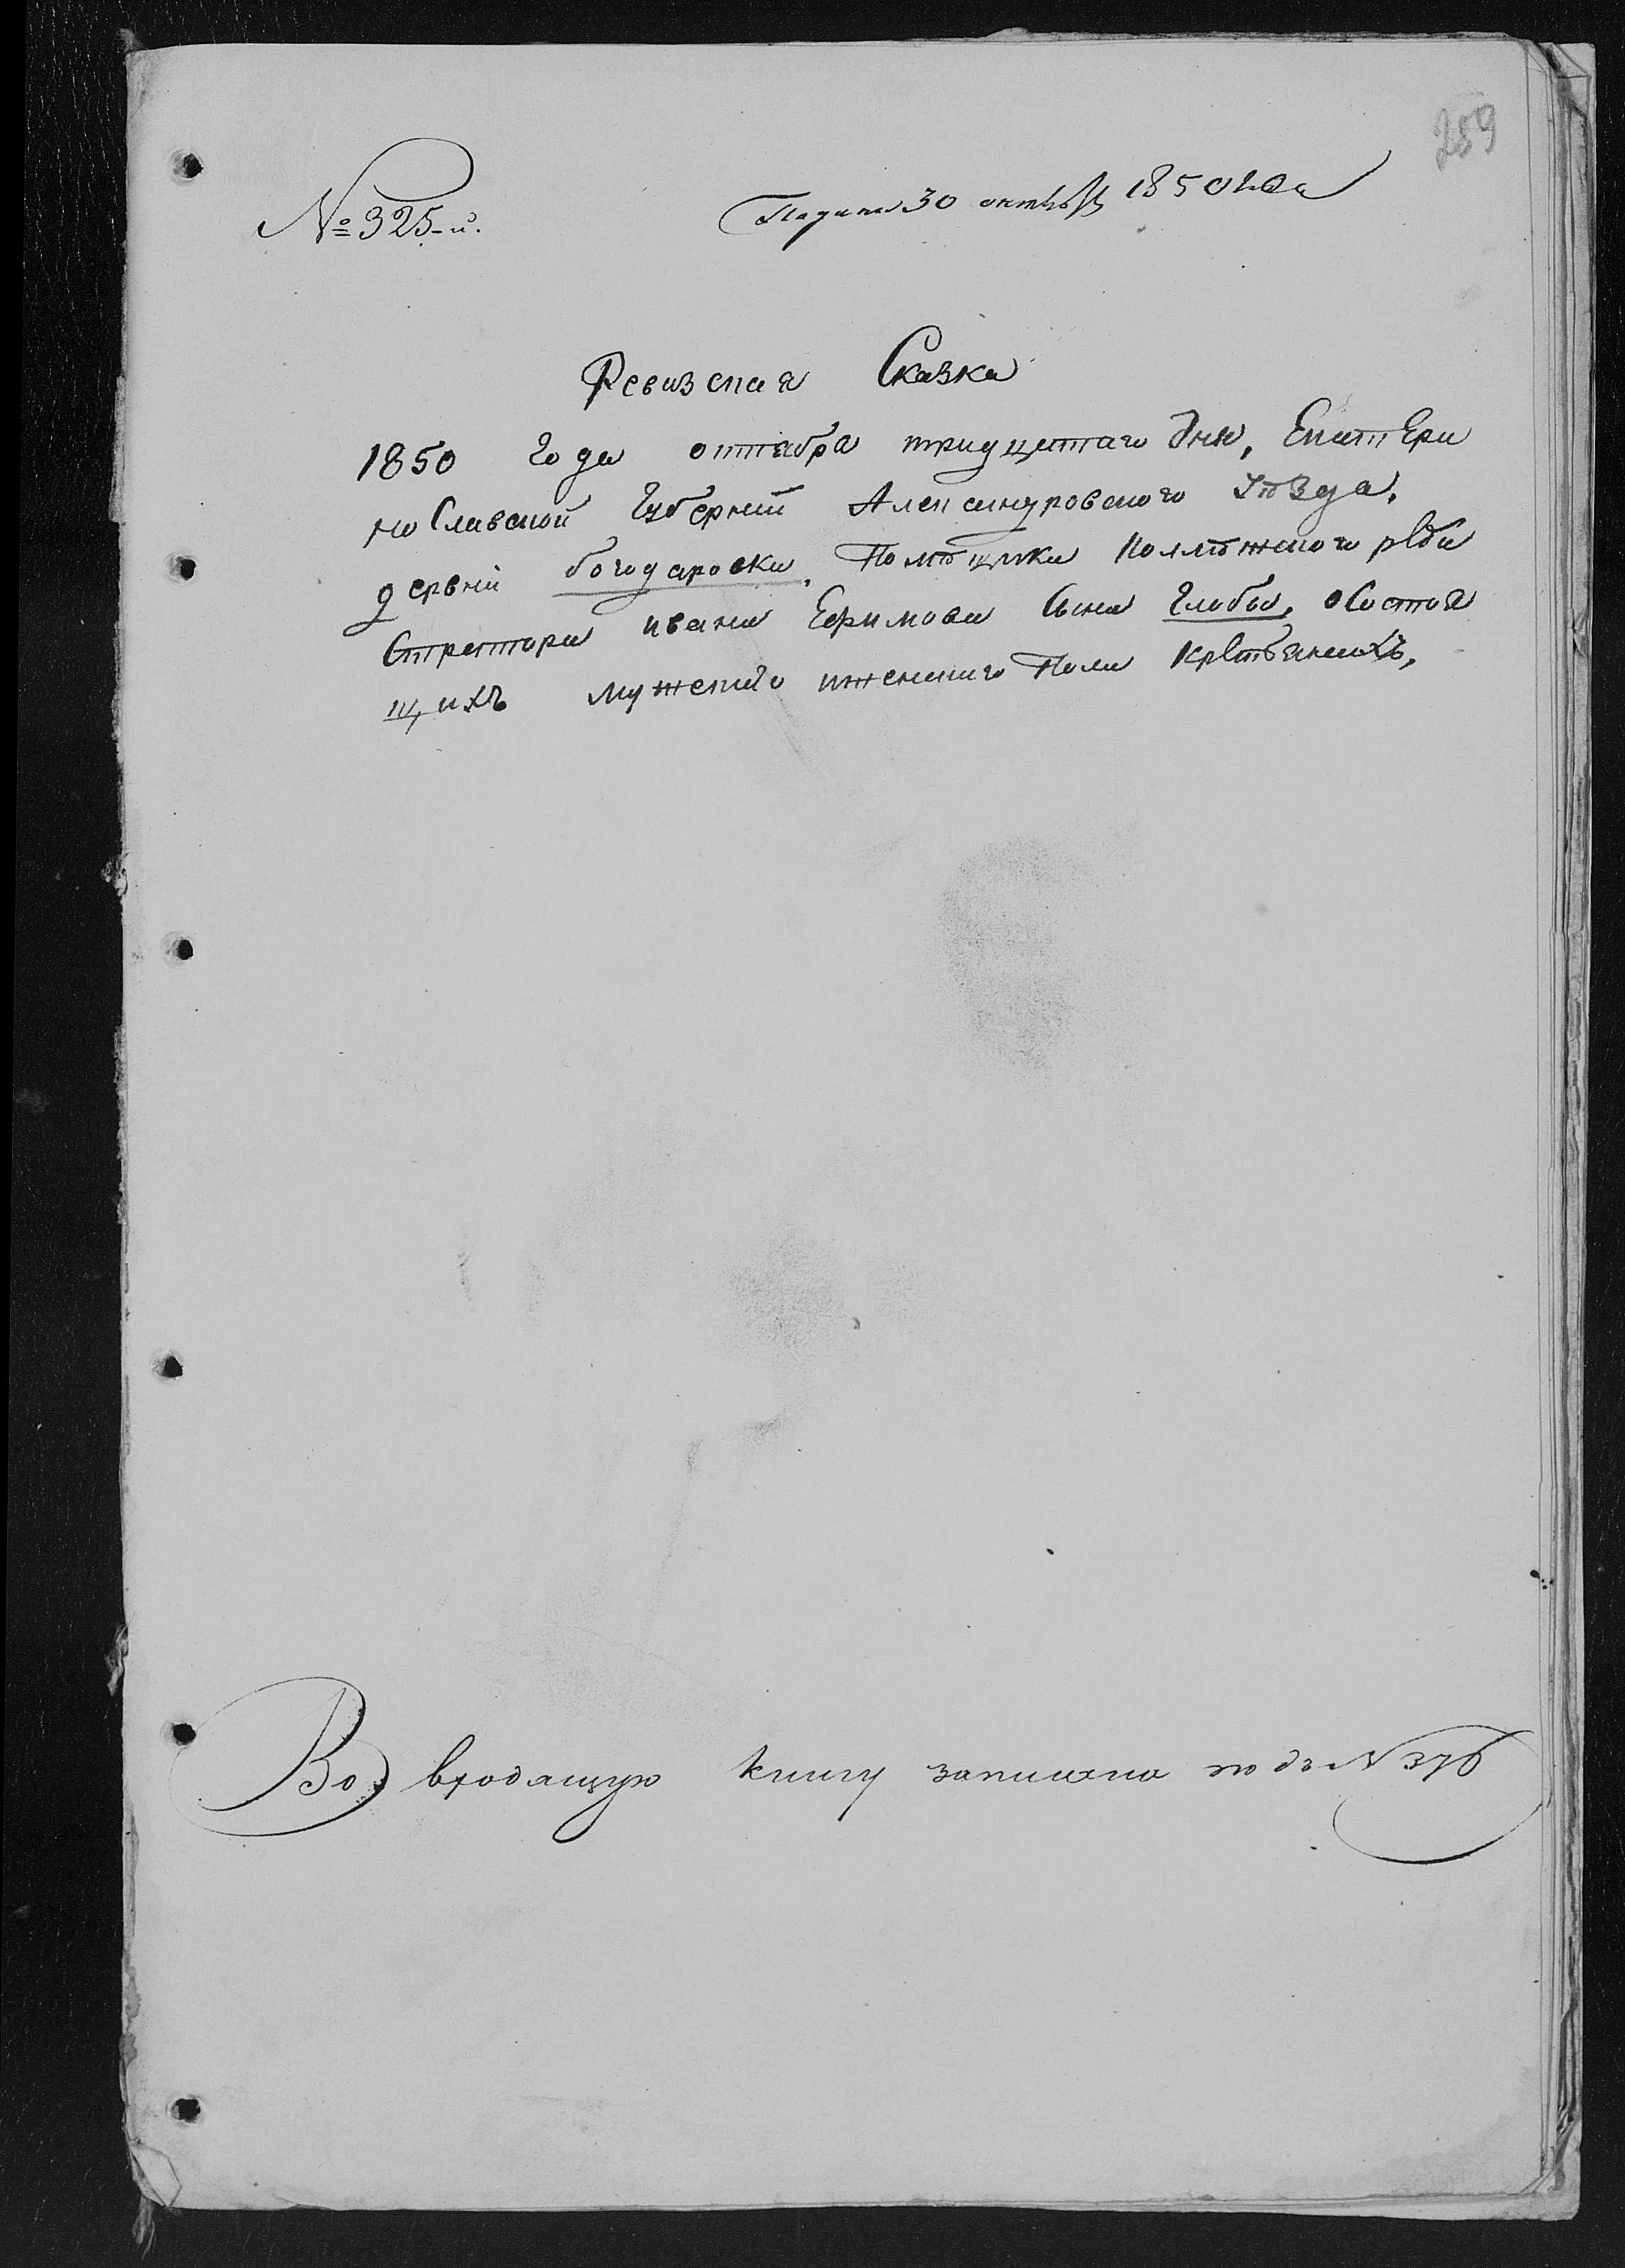 259
№ 325-й.
Подана 30 октября 1850 года
Ревизская Сказка
1850 года октабра тридцетаго дня, Екатери
но Славской Губернии Александровского Уѣзда,
дервни богодаровки, ПомѣщикаКоллѣжского реги
Стратора ивана Ефимова Сына Глобы, о Состоя
щихъ мужского иженского Пола Крестьянахъ,
Во входящую книгу записана подъ № 376